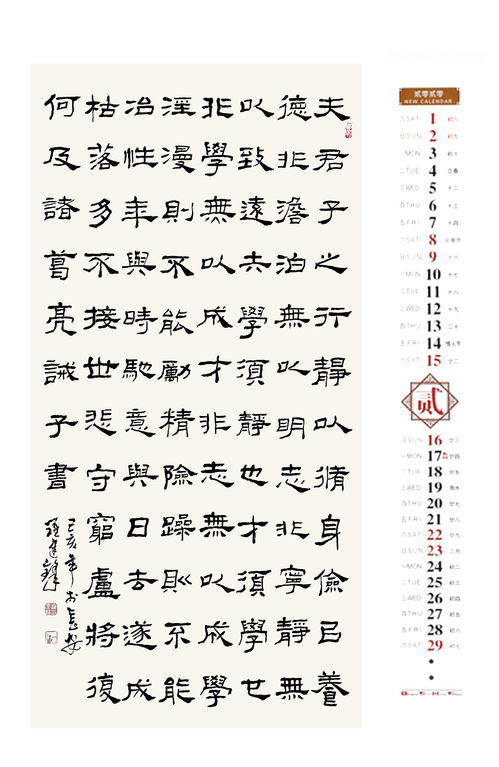 夫君子之行靜以脩身儉㠯養
德非澹泊無以明志非寧靜無
以致遠夫學須靜也才須學也
非學無以成才非志無以成學
淫漫則不能勵精險躁則不能
冶性年與時馳意與日去遂成
枯落多不接世悲守窮盧將復
何及諸葛亮誡子書
己亥年於長安
貳零貳零
NEW CALENDAR
六SAT 1 初八
日SUN 2 初九
一MON 3 初十
二TUE 4 立春
三WED 5 十二
四THU 6 十三
五FRI 7 十四
六SAT 8 元宵节
日SUN 9 十六
一MON 10 十七
二TUE 11 十八
三WED 12 十九
四THU 13 二十
五FRI 14 情人节
六SAT 15 廿二
貳
日SUN 16 廿三
一MON 17 廿四
二TUE 18 廿五
三WED 19 雨水
四THU 20 廿七
五FRI 21 廿八
六SAT 22 廿九
日SUN 23 二月
一MON 24 初二
二TUE 25 初三
三WED 26 初四
四THU 27 初五
五FRI 28 初六
六SAT 29 初七